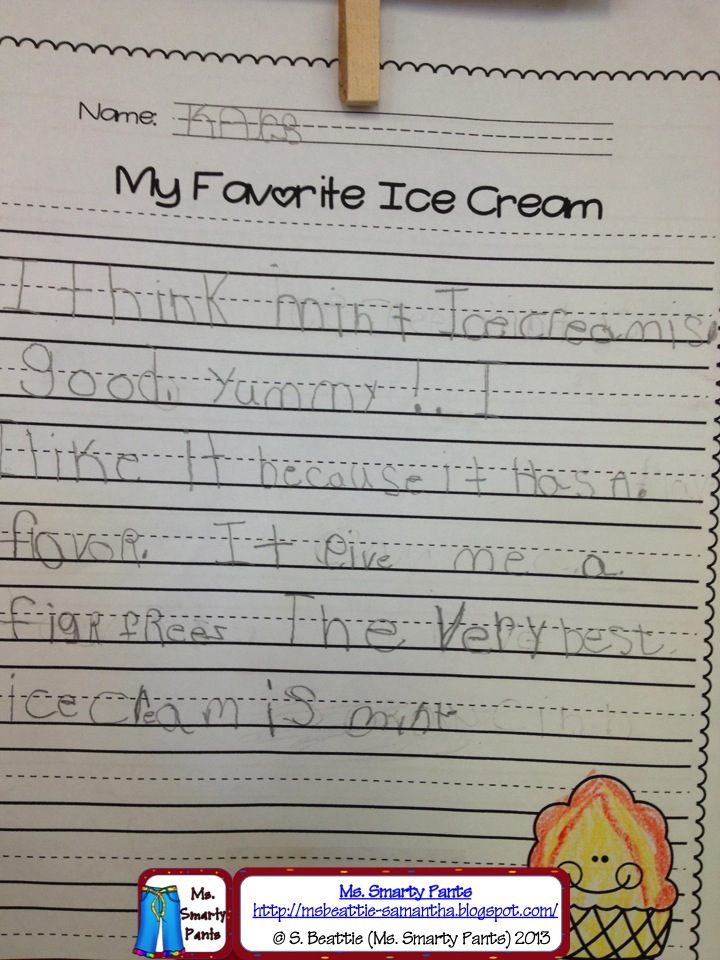 Name:
My Favorite Ice Cream
I think mint Icecream is
good. yummy!. I
like it because it Has A.
flavoR. It give me a
The Very best.
ice cream is mint
Ms. Smarty Pants
Ms. Smarty Pants
http://msbeattie-samantha.blogspot.com/
© S. Beattie (Ms. Smarty Pants) 2013